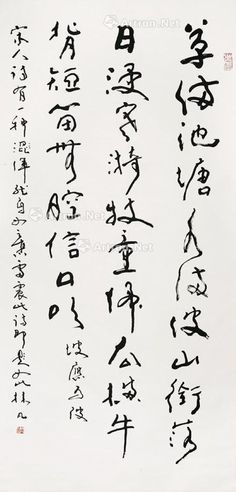 草满池塘水满坡山衔落
日浸寒漪牧童归去横牛
背短笛无腔信口吹
坡应为陂
宋人诗有一种浑
雷震此诗即是如此林凡